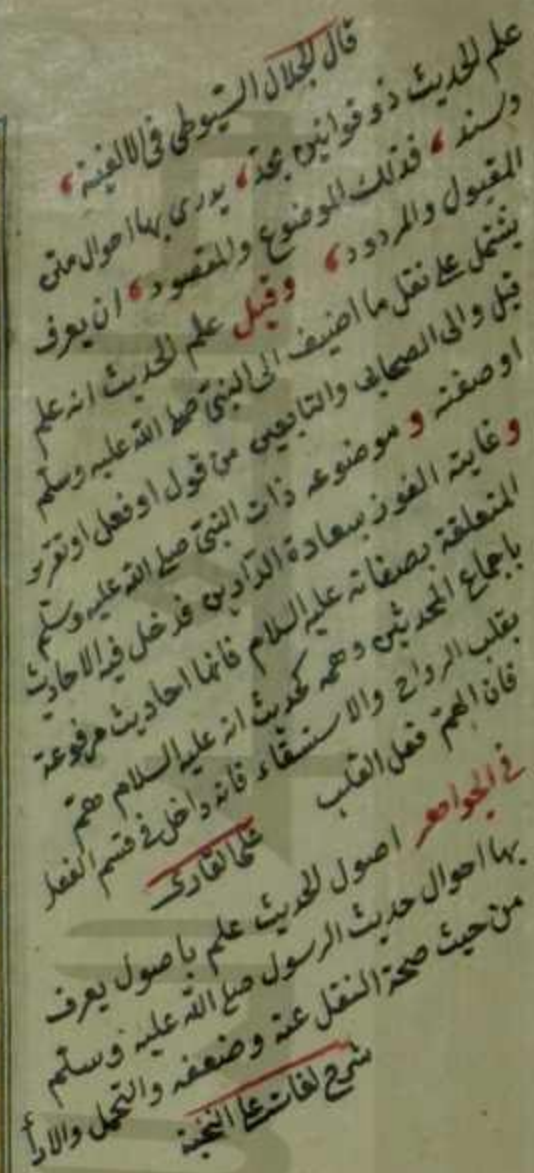 قال الجلال السيوطي في الالفية
علم الحديث ذو قوانين تحد، يدرى بها احوال متن
وسند، فذلك الموضوع والمقصود، ان يعرف
المقبول والمردود، وقيل علم الحديث انه علم
يشتمل على نقل ما اضيف الى النبي صلى الله عليه وسلم
قيل والى الصحابي والتابعي من قول او فعل او تقرير
او صفته و موضوعه ذات النبي صلى الله عليه وسلم
و غايته الفوز بسعادة الدارين فدخل فيه الاحاديث
المتعلقة بصفاته عليه السلام فانها احاديث مرفوعة
باجماع المحدثين وهمه كحديث انه عليه السلام همّ
بقلب الرداء والاستسقاء فانه داخل في قسم الفعل
فان الهمّ فعل القلب على القارى
في الجواهر اصول الحديث علم باصول يعرف
بها احوال حديث الرسول صلى الله عليه وسلم
من حيث صحة النقل عنه وضعفه والتحمل والادأ
شرح على النخبة